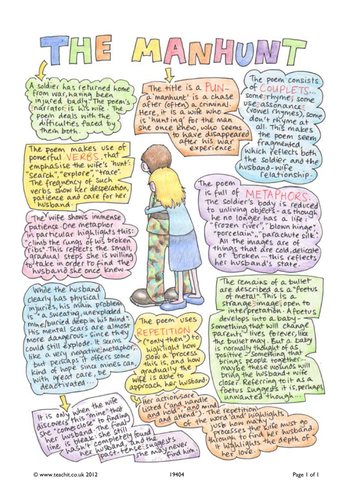 THE MANHUNT
A soldier has returned home
from war, having been
injured badly. The poem's
narrator is his wife. The
poem deals with the
difficulties faced by
them both.
The title is a PUN -
a 'manhunt' is a chase
after (often) a criminal.
Here, it is a wife who
is 'hunting' for the man
she once knew, who seems
to have disappeared
after his war
experience.
The poem consists
of COUPLETS...
some rhyme, some
use assonance
(vowel rhymes), some
don't rhyme at
all. This makes
the poem seem
fragmented,
which reflects
both the soldier and
the husband-wife
relationship.
The poem makes use of
powerful VERBS that
emphasise the wife's 'hunt':
"search", "explore", "trace".
The frequency of such
verbs show her desperation,
patience and care for her
husband.
The poem
is full of METAPHORS.
The soldier's body is reduced
to unliving objects - as though
he no longer has a life:
"frozen river", "blown hinge",
"porcelain", "parachute silk".
All the images are of
things that are cold, delicate
or broken... this reflects
her husband's state.
The wife shows immense
patience. One metaphor
in particular highlights this:
"climb the rungs of his broken
ribs". This reflects the small,
gradual steps she is willing
to take in order to find the
husband she once knew.
While the husband
clearly has physical
injuries, his main problem
is "a sweating, unexploded
mine/buried deep in his mind".
His mental scars are almost
more dangerous since they
could still explode. It seems
like a very negative metaphor,
but perhaps it offers some
kind of hope since mines can,
with great care, be
deactivated...
The poem uses
REPETITION
("only then") to
highlight how
slow a process
this is, and how
gradually the
wife is able to
approach her husband.
The remains of a bullet
are described as a "foetus
of metal". This is a
strange image, open to
interpretation. A foetus
develops into a baby -
something that will change
parents' lives forever, like
the bullet may. But a baby
is normally thought of as
positive - something that
brings people together -
maybe these wounds will
bring the husband & wife
closer. Referring to it as a
foetus suggests it is perhaps
unwanted though...
It is only when the wife
discovers this "mine" that
she "comes close" to finding
her husband. The final
line is bleak: she still
hasn't completely found
her husband, and the
past-tense suggests
she may never
find him.
Her actions are
listed ("and handle
and hold", "and mind
and attend"). The repetition
of the word 'and' highlights
just how many
processes the wife must go
through to find her husband.
It highlights the depth of
her love.
© www.teachit.co.uk 2012
19404
Page 1 of 1